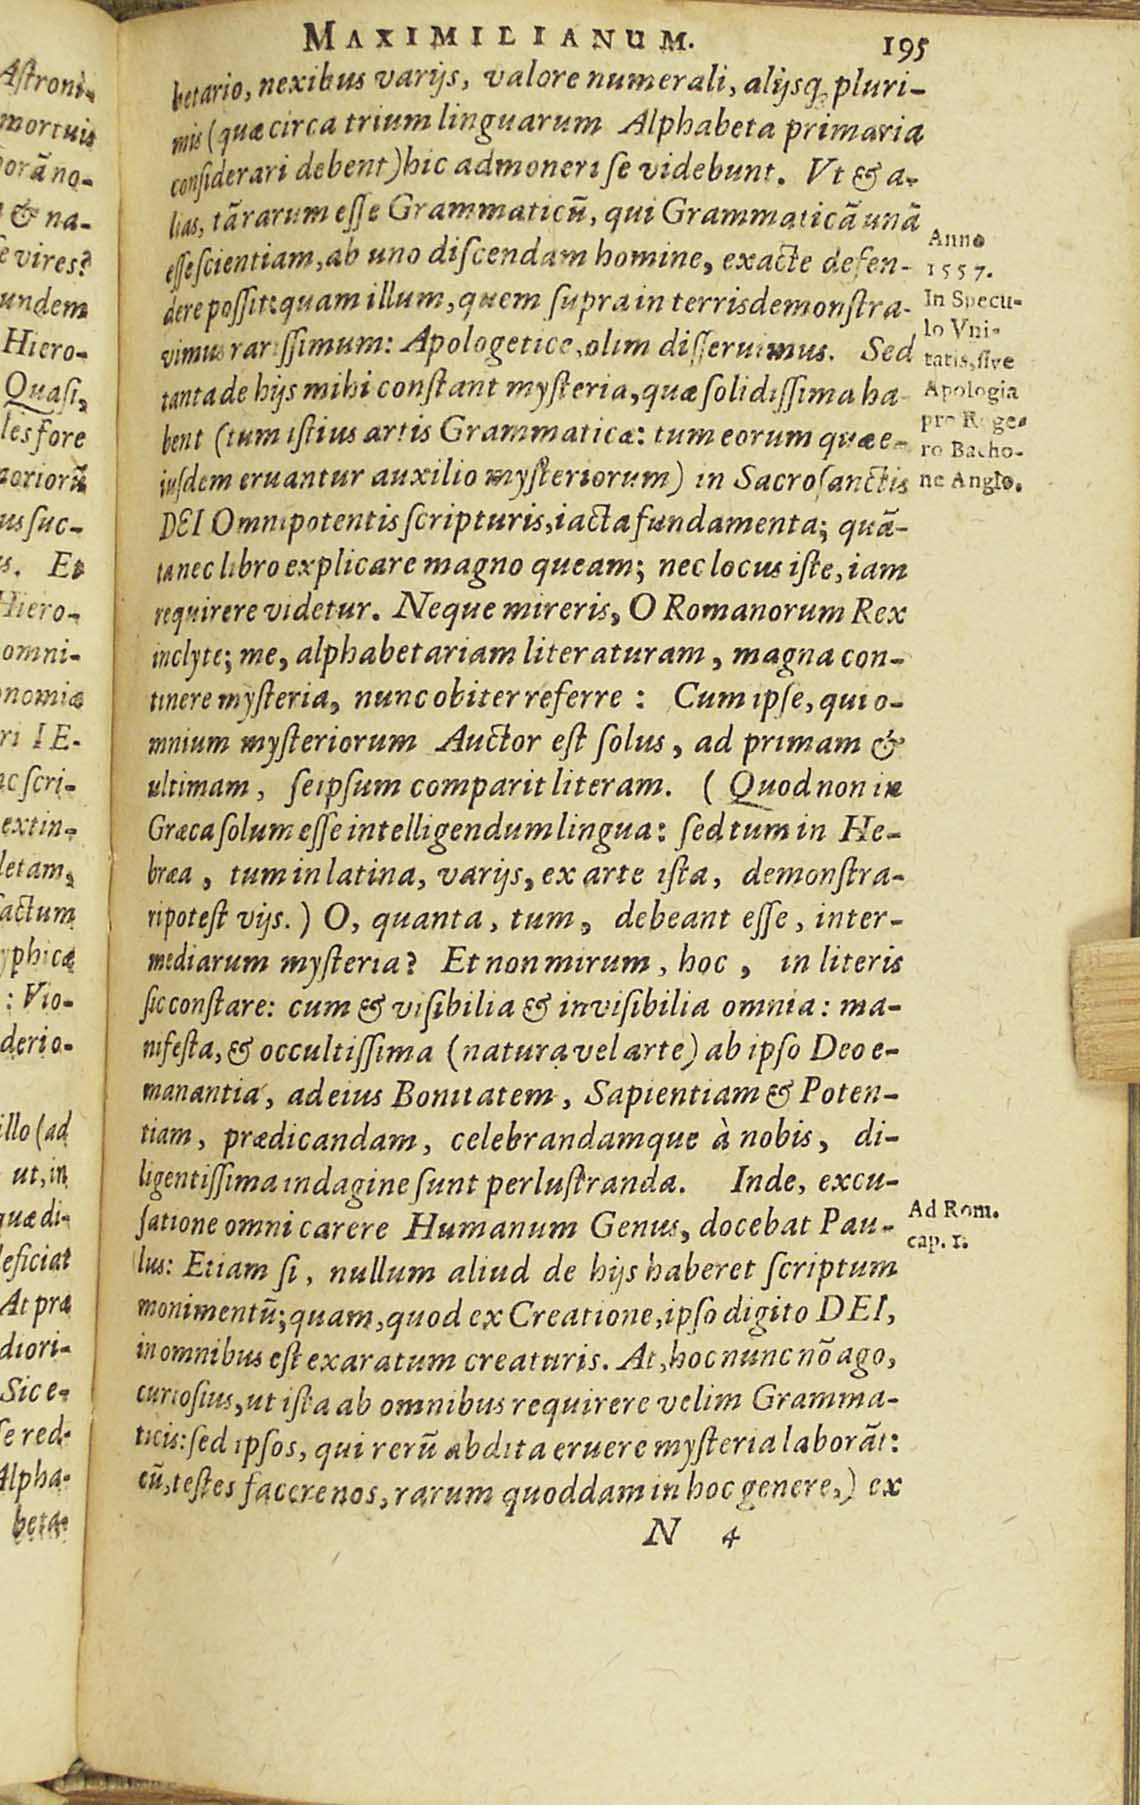 MAXIMILIANUM. 195
betario, nexibus varijs, valore numerali, alijsq; pluri-
mis (quæ circa trium linguarum Alphabeta primaria
considerari debent) hic admoneri se videbunt. Vt & a-
lias, tā rarum esse Grammaticū, qui Grammaticā unā
esse scientiam, ab uno discendam homine, exacte defen-
dere possit: quam illum, quem supra in terris demonstra-
vimus rarissimum: Apologetice, olim disseruimus. Sed
tanta de hijs mihi constant mysteria, quæ solidissima ha-
bent (tum istius artis Grammaticæ: tum eorum quæ e-
iusdem eruantur auxilio mysteriorum) in Sacrosanctis
DEI Omnipotentis scripturis, iacta fundamenta; quā-
ta nec libro explicare magno queam; nec locus iste, iam
requirere videtur. Neque mireris, O Romanorum Rex
inclyte; me, alphabetariam literaturam, magna con-
tinere mysteria, nunc obiter referre: Cum ipse, qui o-
mnium mysteriorum Auctor est solus, ad primam &
ultimam, seipsum comparit literam. (Quod non in
Græca solum esse intelligendum lingua: sed tum in He-
bræa, tum in latina, varijs, ex arte ista, demonstra-
ri potest vijs.) O, quanta, tum, debeant esse, inter-
mediarum mysteria? Et non mirum, hoc, in literis
sic constare: cum & visibilia & invisibilia omnia: ma-
nifesta, & occultissima (natura vel arte) ab ipso Deo e-
manantia, ad eius Bonitatem, Sapientiam & Poten-
tiam, prædicandam, celebrandamque à nobis, di-
ligentissima indagine sunt perlustranda. Inde, excu-
satione omni carere Humanum Genus, docebat Pau-
lus: Etiam si, nullum aliud de hijs haberet scriptum
monimentū; quam, quod ex Creatione, ipso digito DEI,
in omnibus est exaratum creaturis. At, hoc nunc nō ago,
curiosius, ut ista ab omnibus requirere velim Gramma-
ticis: sed ipsos, qui rerū abdita eruere mysteria laborāt:
cū, testes facere nos, rarum quoddam in hoc genere,) ex
N 4
Anno
1557.
In Specu-
lo Vni-
tatis, sive
Apologia
pro Roge-
ro Bacho-
ne Anglo.
Ad Rom.
cap. 1.
Astroni-
mortuis
porā no-
& na-
vires?
undem
Hiero-
Quasi,
les fore
us suc-
Et
Hiero-
omni-
onomiæ
ri IE-
scri-
extin-
letam,
factum
: Vio-
derio-
illo (ad
ut, in
quæ di-
deficiat
At præ
diori-
Sic e-
red-
Alpha-
beta-